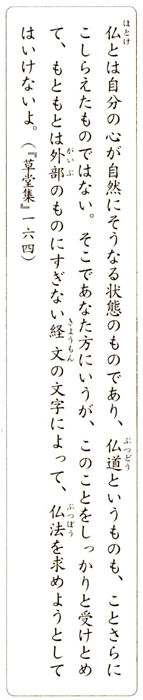 仏とは自分の心が自然にそうなる状態のものであり、仏道というものも、ことさらに
こしらえたものではない。そこであなた方にいうが、このことをしっかりと受けとめ
て、もともとは外部のものにすぎない経文の文字によって、仏法を求めようとして
はいけないよ。（『草堂集』一六四）